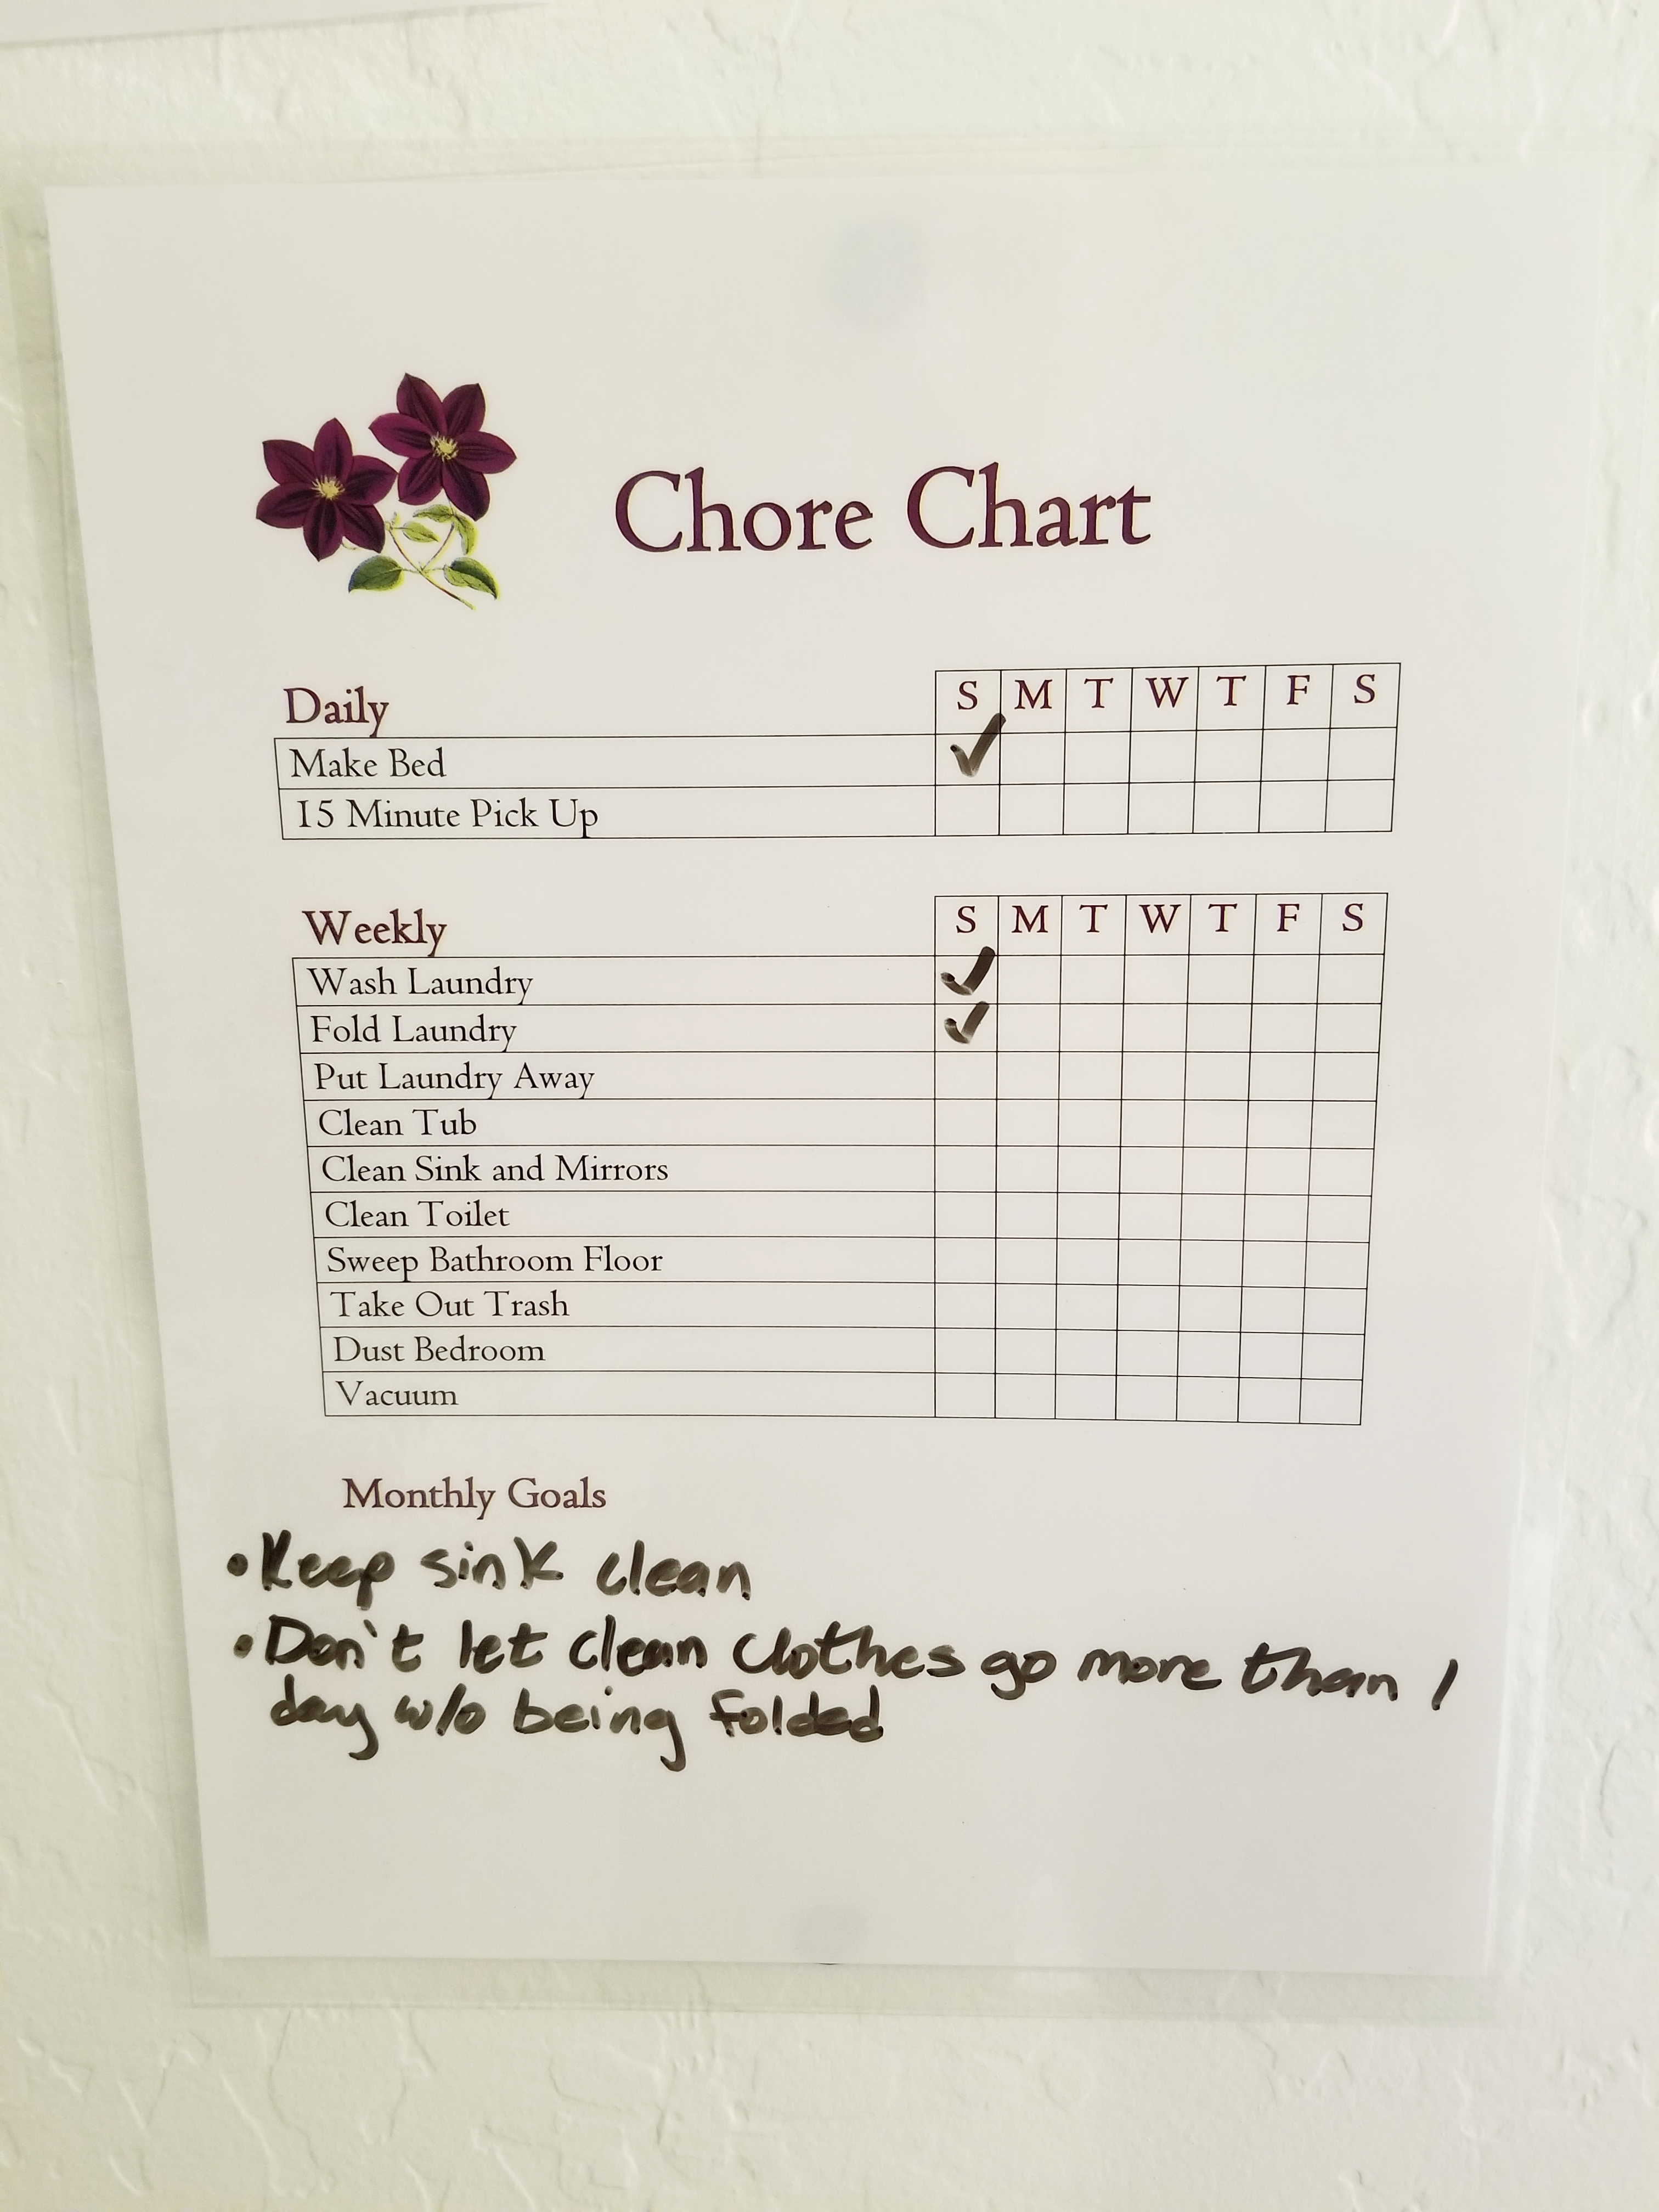 Chore Chart
Daily S M T W T F S
Make Bed ✓
15 Minute Pick Up
Weekly S M T W T F S
Wash Laundry ✓
Fold Laundry ✓
Put Laundry Away
Clean Tub
Clean Sink and Mirrors
Clean Toilet
Sweep Bathroom Floor
Take Out Trash
Dust Bedroom
Vacuum
Monthly Goals
•Keep sink clean
•Don't let clean clothes go more than 1
day w/o being folded